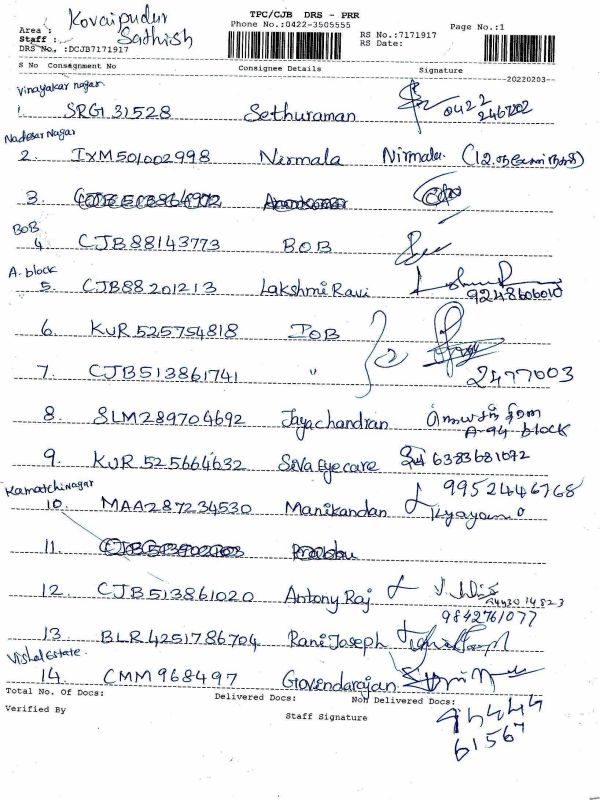 TPC/CJB DRS - PRR
Kovaipudur
Area : Phone No.:0422-3505555 Page No.:1
Sathish
Staff : RS No.:7171917
RS Date:
DRS No, :DCJB7171917
S No Consignment No Consignee Details Signature
20220203
Vinayakar nagar
1. SRG131528 Sethuraman 0422
2467202
Nadesar Nagar
2. IXM501002998 Nirmala Nirmala
3.
BOB
4 CJB88143773 BOB
A. block
5. CJB88201213 Lakshmi Ravi
9248606010
6. KUR525754818 IOB 2
7. CJB513861741 " 2477003
8. SLM289704692 Jayachandran
A-94 block
9. KUR525664632 Siva Eye care 6383681092
Kamatchi Nagar 9952446768
10. MAA287234530 Manikandan
11.
12. CJB513861020 Antony Raj
9842761077
13. BLR4251786704 Rani Joseph
Vishal Estate.
14. CMM968497 Govindarajan
Total No. Of Docs: Delivered Docs: Non Delivered Docs:
Verified By Staff Signature
61567